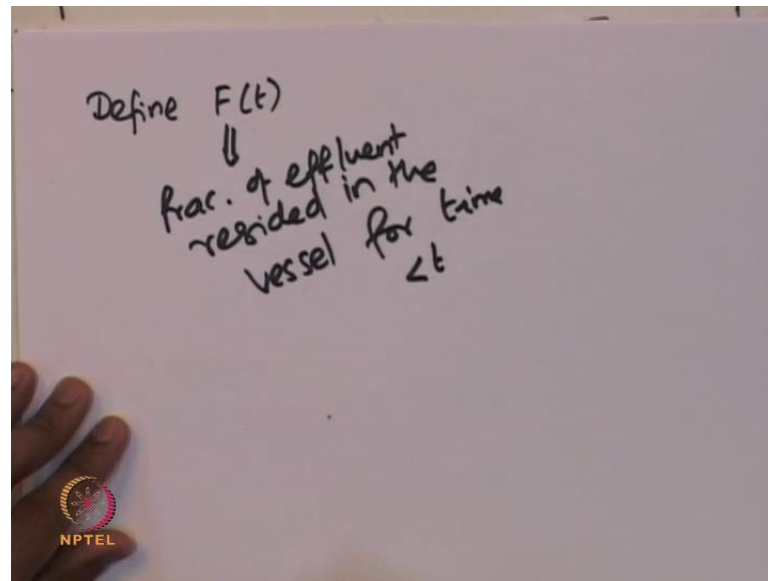 Define F(t)
⇓
frac. of effluent
resided in the
vessel for time
<t
NPTEL